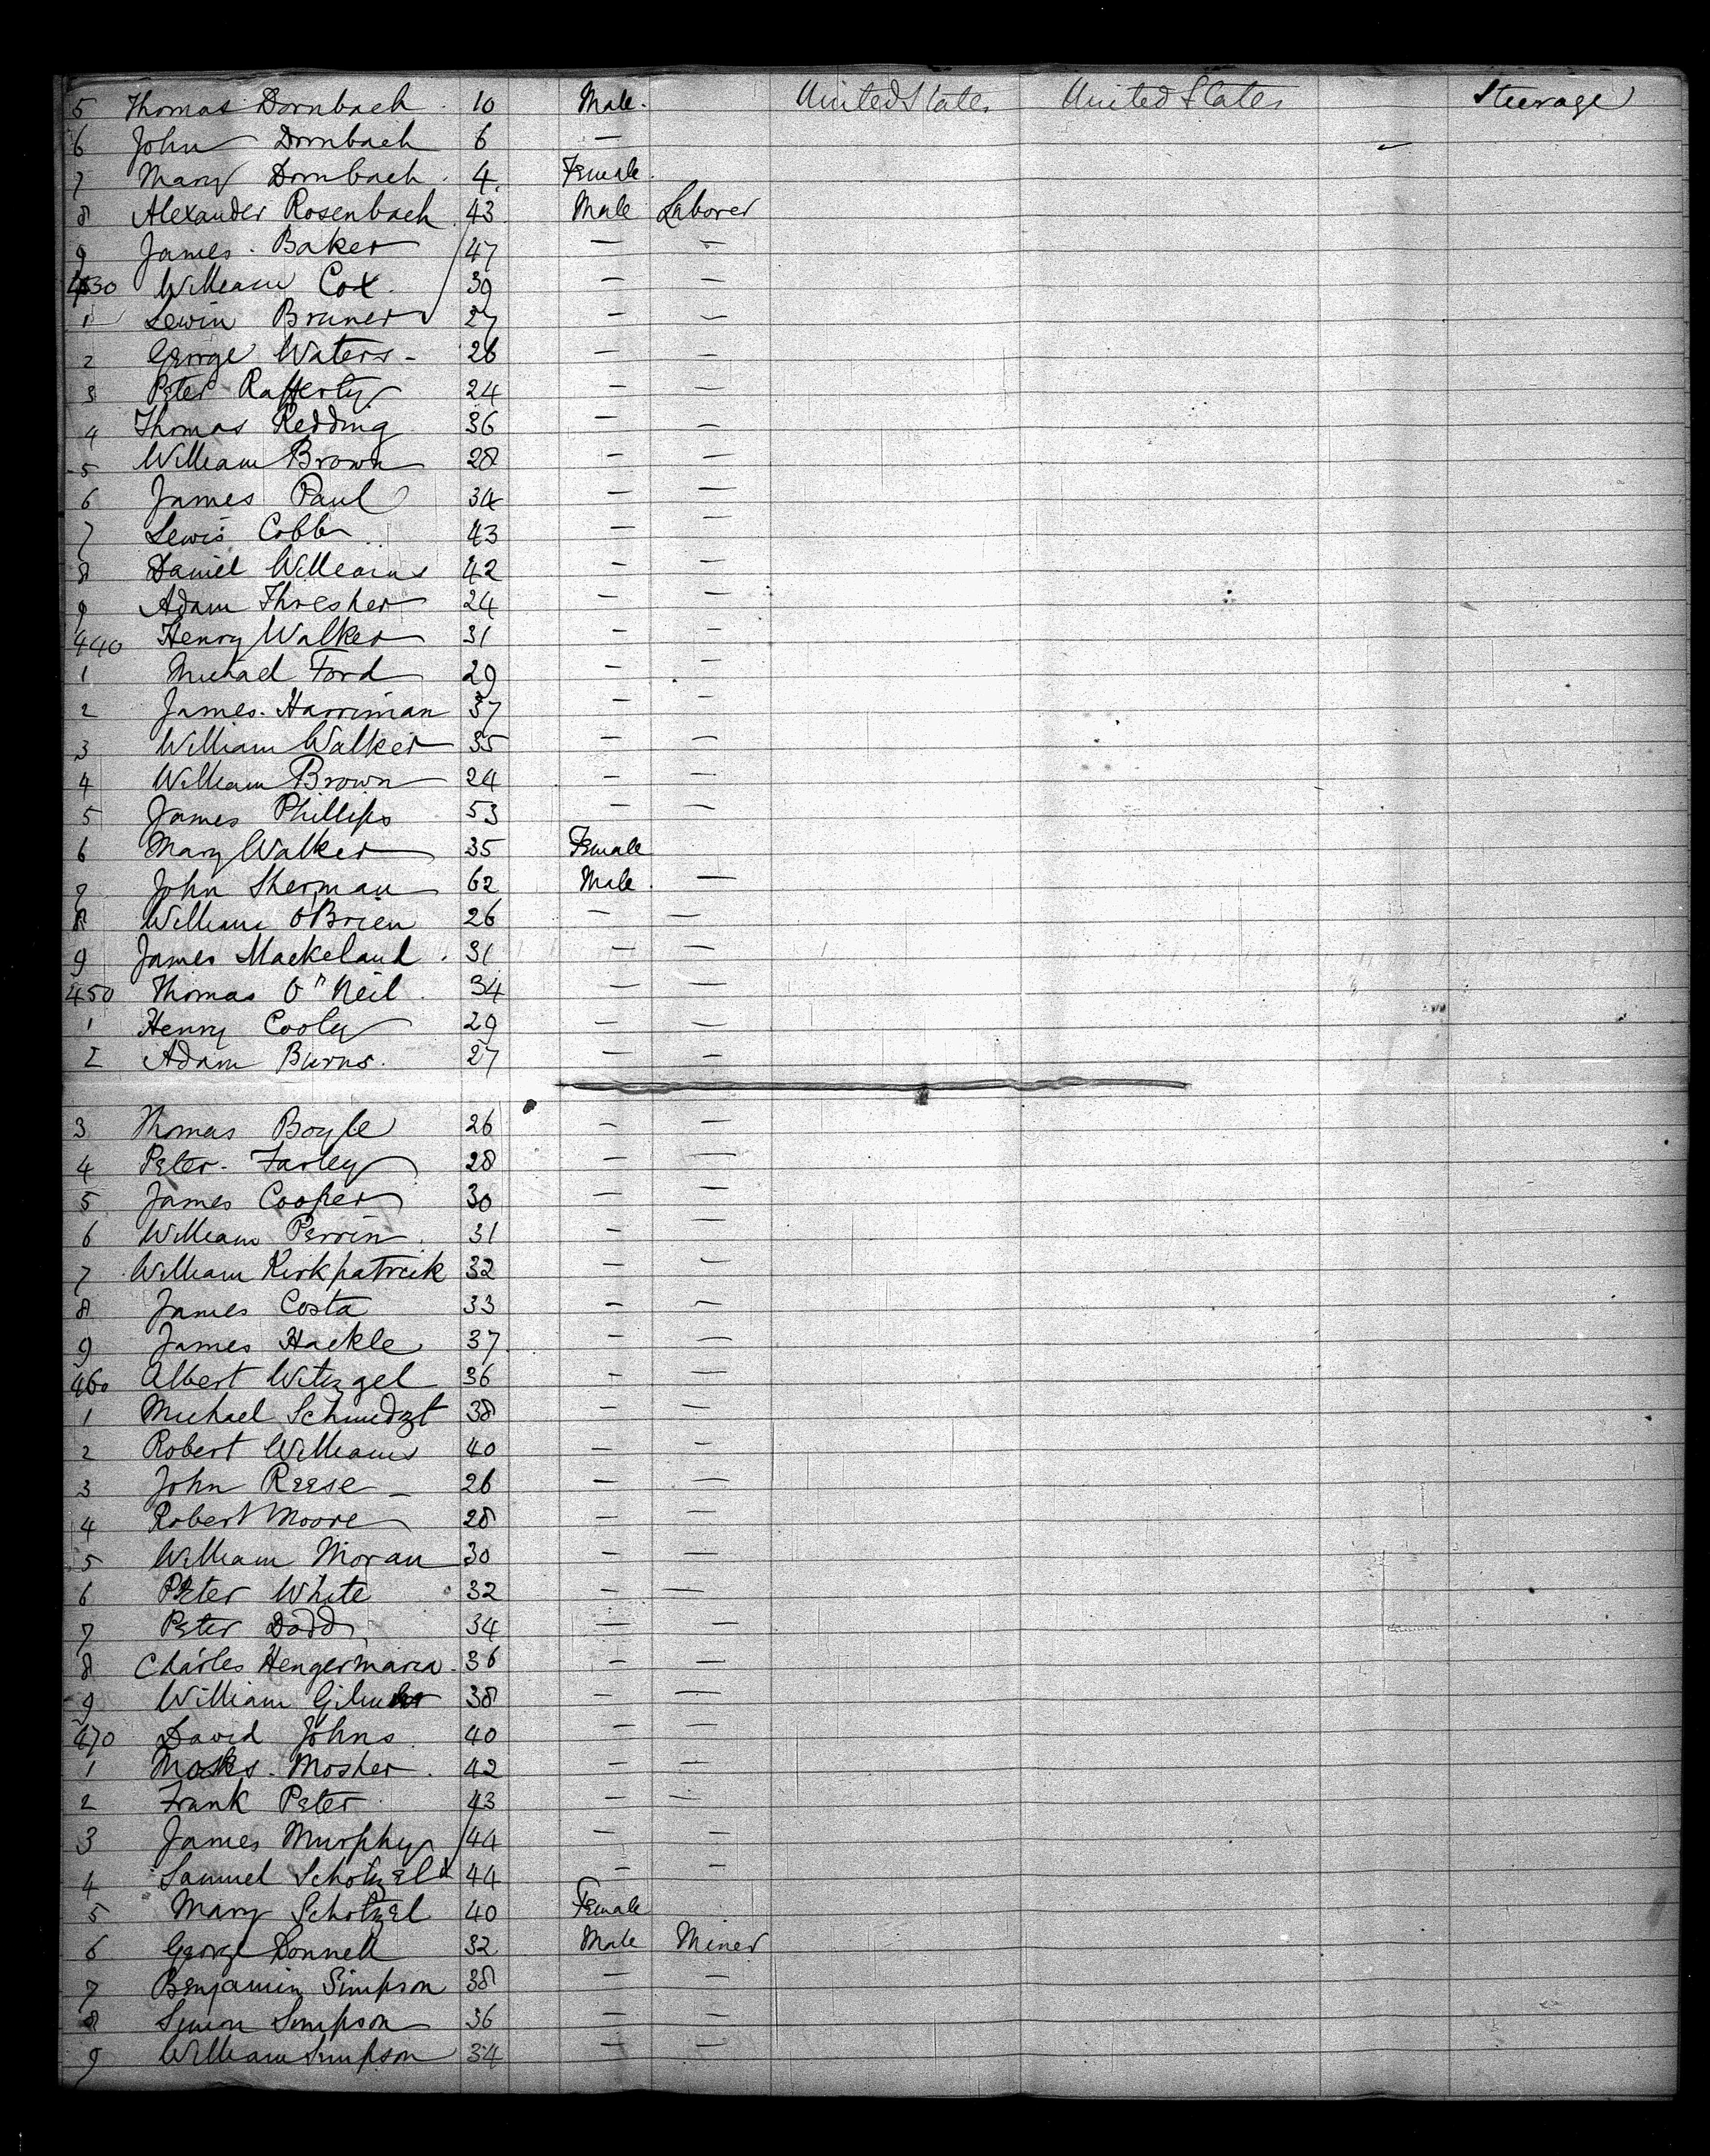 5 Thomas Dornbach 10 Male. United States United States Steerage
6 John Dornbach 6 —
7 Mary Dornbach 4 Female
8 Alexander Rosenbach 43 Male Laborer
9 James Baker 47 — —
430 William Cox 39 — —
1 Lewin Bruner 27 — —
2 George Waters 26 — —
3 Peter Rafferty 24 — —
4 Thomas Redding 36 — —
5 William Brown 28 — —
6 James Paul 34 — —
7 Lewis Cobb 43 — —
8 Daniel Williams 42 — —
9 Adam Thresher 24 — —
440 Henry Walker 31 — —
1 Michael Ford 29 — —
2 James Harriman 37 — —
3 William Walker 35 — —
4 William Brown 24 — —
5 James Phillips 53 — —
6 Mary Walker 35 Female
7 John Sherman 62 Male —
8 William O'Brien 26 — —
9 James Mackeland 31 — —
450 Thomas O"Neil 34 — —
1 Henry Cooly 29 — —
2 Adam Burns 27 — —
3 Thomas Boyle 26 — —
4 Peter Farley 28 — —
5 James Cooper 30 — —
6 William Perrin 31 — —
7 William Kirkpatrick 32 — —
8 James Costa 33 — —
9 James Hackle 37 — —
460 Albert Witzgel 36 — —
1 Michael Schmidzt 38 — —
2 Robert Williams 40 — —
3 John Reese 26 — —
4 Robert Moore 28 — —
5 William Moran 30 — —
6 Peter White 32 — —
7 Peter Dodd 34 — —
8 Charles 36 — —
9 William 38 — —
470 David Johns 40 — —
1 Moses Mosher 42 — —
2 Frank Peter 43 — —
3 James Murphy 44 — —
4 Samuel Schotzel 44 — —
5 Mary Schotzel 40 Female
6 George Donnell 32 Male Miner
7 Benjamin Simpson 38 — —
8 Simon Simpson 36 — —
9 William Simpson 34 — —